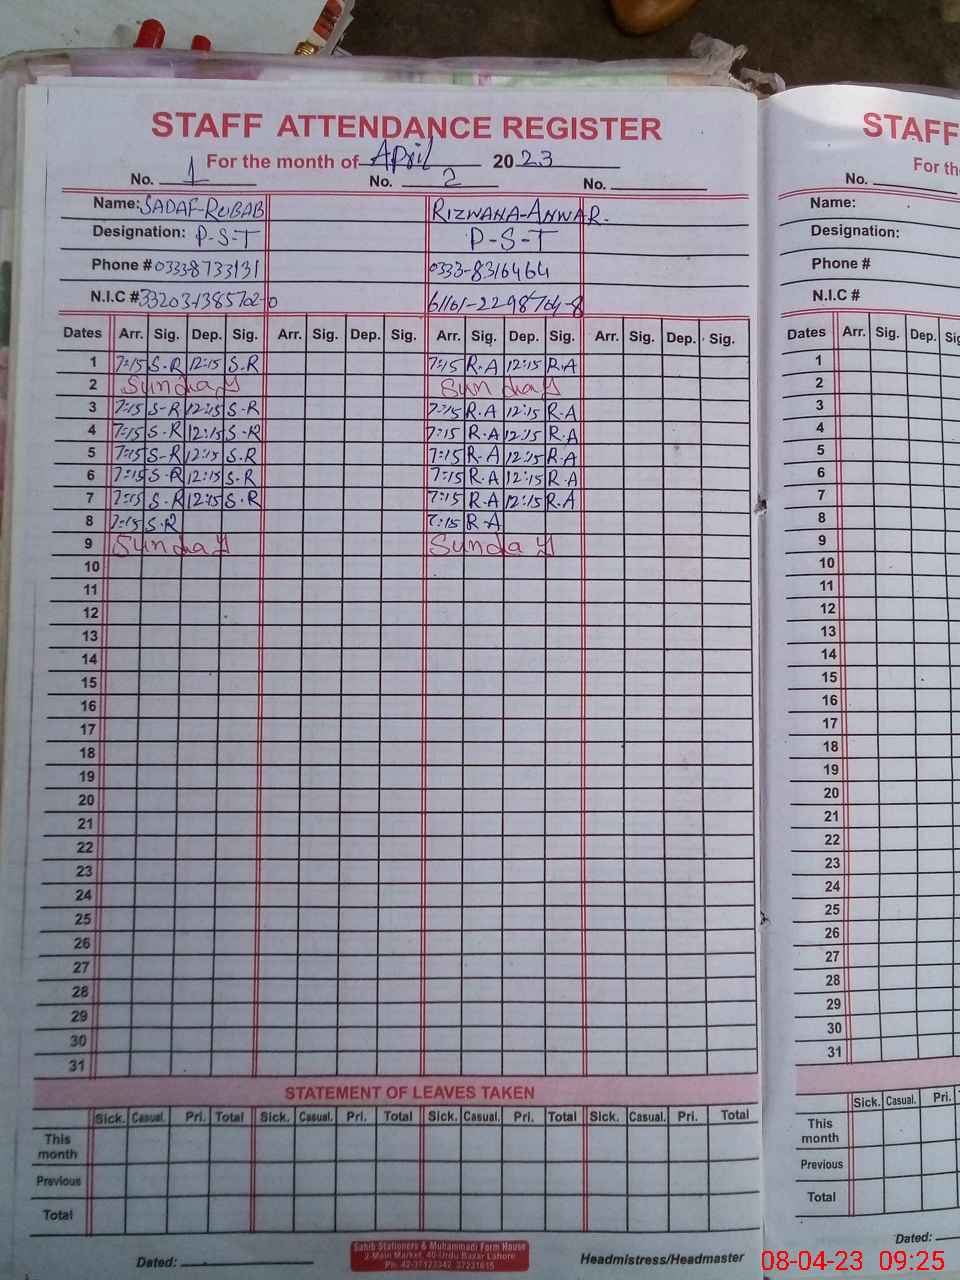 STAFF ATTENDANCE REGISTER
For the month of April 2023
No. 1 No. 2 No.
Name: SADAF-RUBAB RIZWANA-ANWAR.
Designation: P-S-T P-S-T
Phone # 03338733131 0333-8316464
N.I.C # 33203-1385702-0 61101-2298764-8
Dates Arr. Sig. Dep. Sig. Arr. Sig. Dep. Sig. Arr. Sig. Dep. Sig. Arr. Sig. Dep. Sig.
1 7:15 S.R 12:15 S.R 7:15 R.A 12:15 R.A
2 Sunday Sunday
3 7:15 S-R 12:15 S.R 7:15 R.A 12:15 R.A
4 7:15 S.R 12:15 S-R 7:15 R.A 12:15 R.A
5 7:15 S-R 12:15 S.R 7:15 R.A 12:15 R.A
6 7:15 S.R 12:15 S.R 7:15 R.A 12:15 R.A
7 7:15 S.R 12:15 S.R 7:15 R.A 12:15 R.A
8 7:15 S.R 7:15 R.A
9 Sunday Sunday
10
11
12
13
14
15
16
17
18
19
20
21
22
23
24
25
26
27
28
29
30
31
STATEMENT OF LEAVES TAKEN
Sick. Casual. Pri. Total Sick. Casual. Pri. Total Sick. Casual. Pri. Total Sick. Casual. Pri. Total
This
month
Previous
Total
Dated:
Sahib Stationers & Muhammadi Form House
2-Main Market, 40-Urdu Bazar Lahore
Ph: 42-37123342, 37231615
Headmistress/Headmaster
STAFF
For th
No.
Name:
Designation:
Phone #
N.I.C #
Dates Arr. Sig. Dep. Sig
1
2
3
4
5
6
7
8
9
10
11
12
13
14
15
16
17
18
19
20
21
22
23
24
25
26
27
28
29
30
31
Sick. Casual. Pri.
This
month
Previous
Total
Dated:
08-04-23 09:25